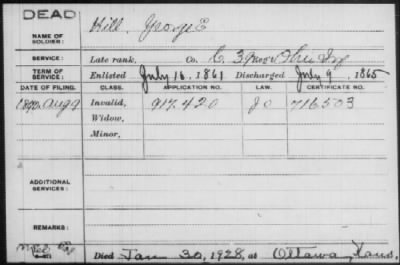 DEAD
NAME OF SOLDIER: Hill, George E
SERVICE: Late rank, Co. C, 39 Reg't Ohio Inf
TERM OF SERVICE: Enlisted July 16, 1861 Discharged July 9, 1865
DATE OF FILING. CLASS. APPLICATION NO. LAW. CERTIFICATE NO.
1890, Aug 9 Invalid, 917.420 Jo 716503
Widow,
Minor,
ADDITIONAL SERVICES:
REMARKS:
Died Jan 30, 1928, at Ottawa, Kans.